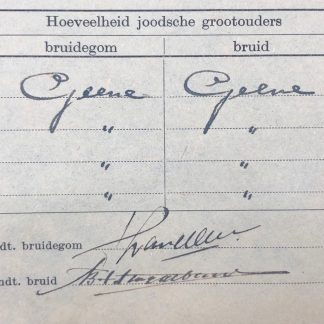 Hoeveelheid joodsche grootouders
bruidegom bruid
Geene Geene
" "
" "
" "
dt. bruidegom
ndt. bruid